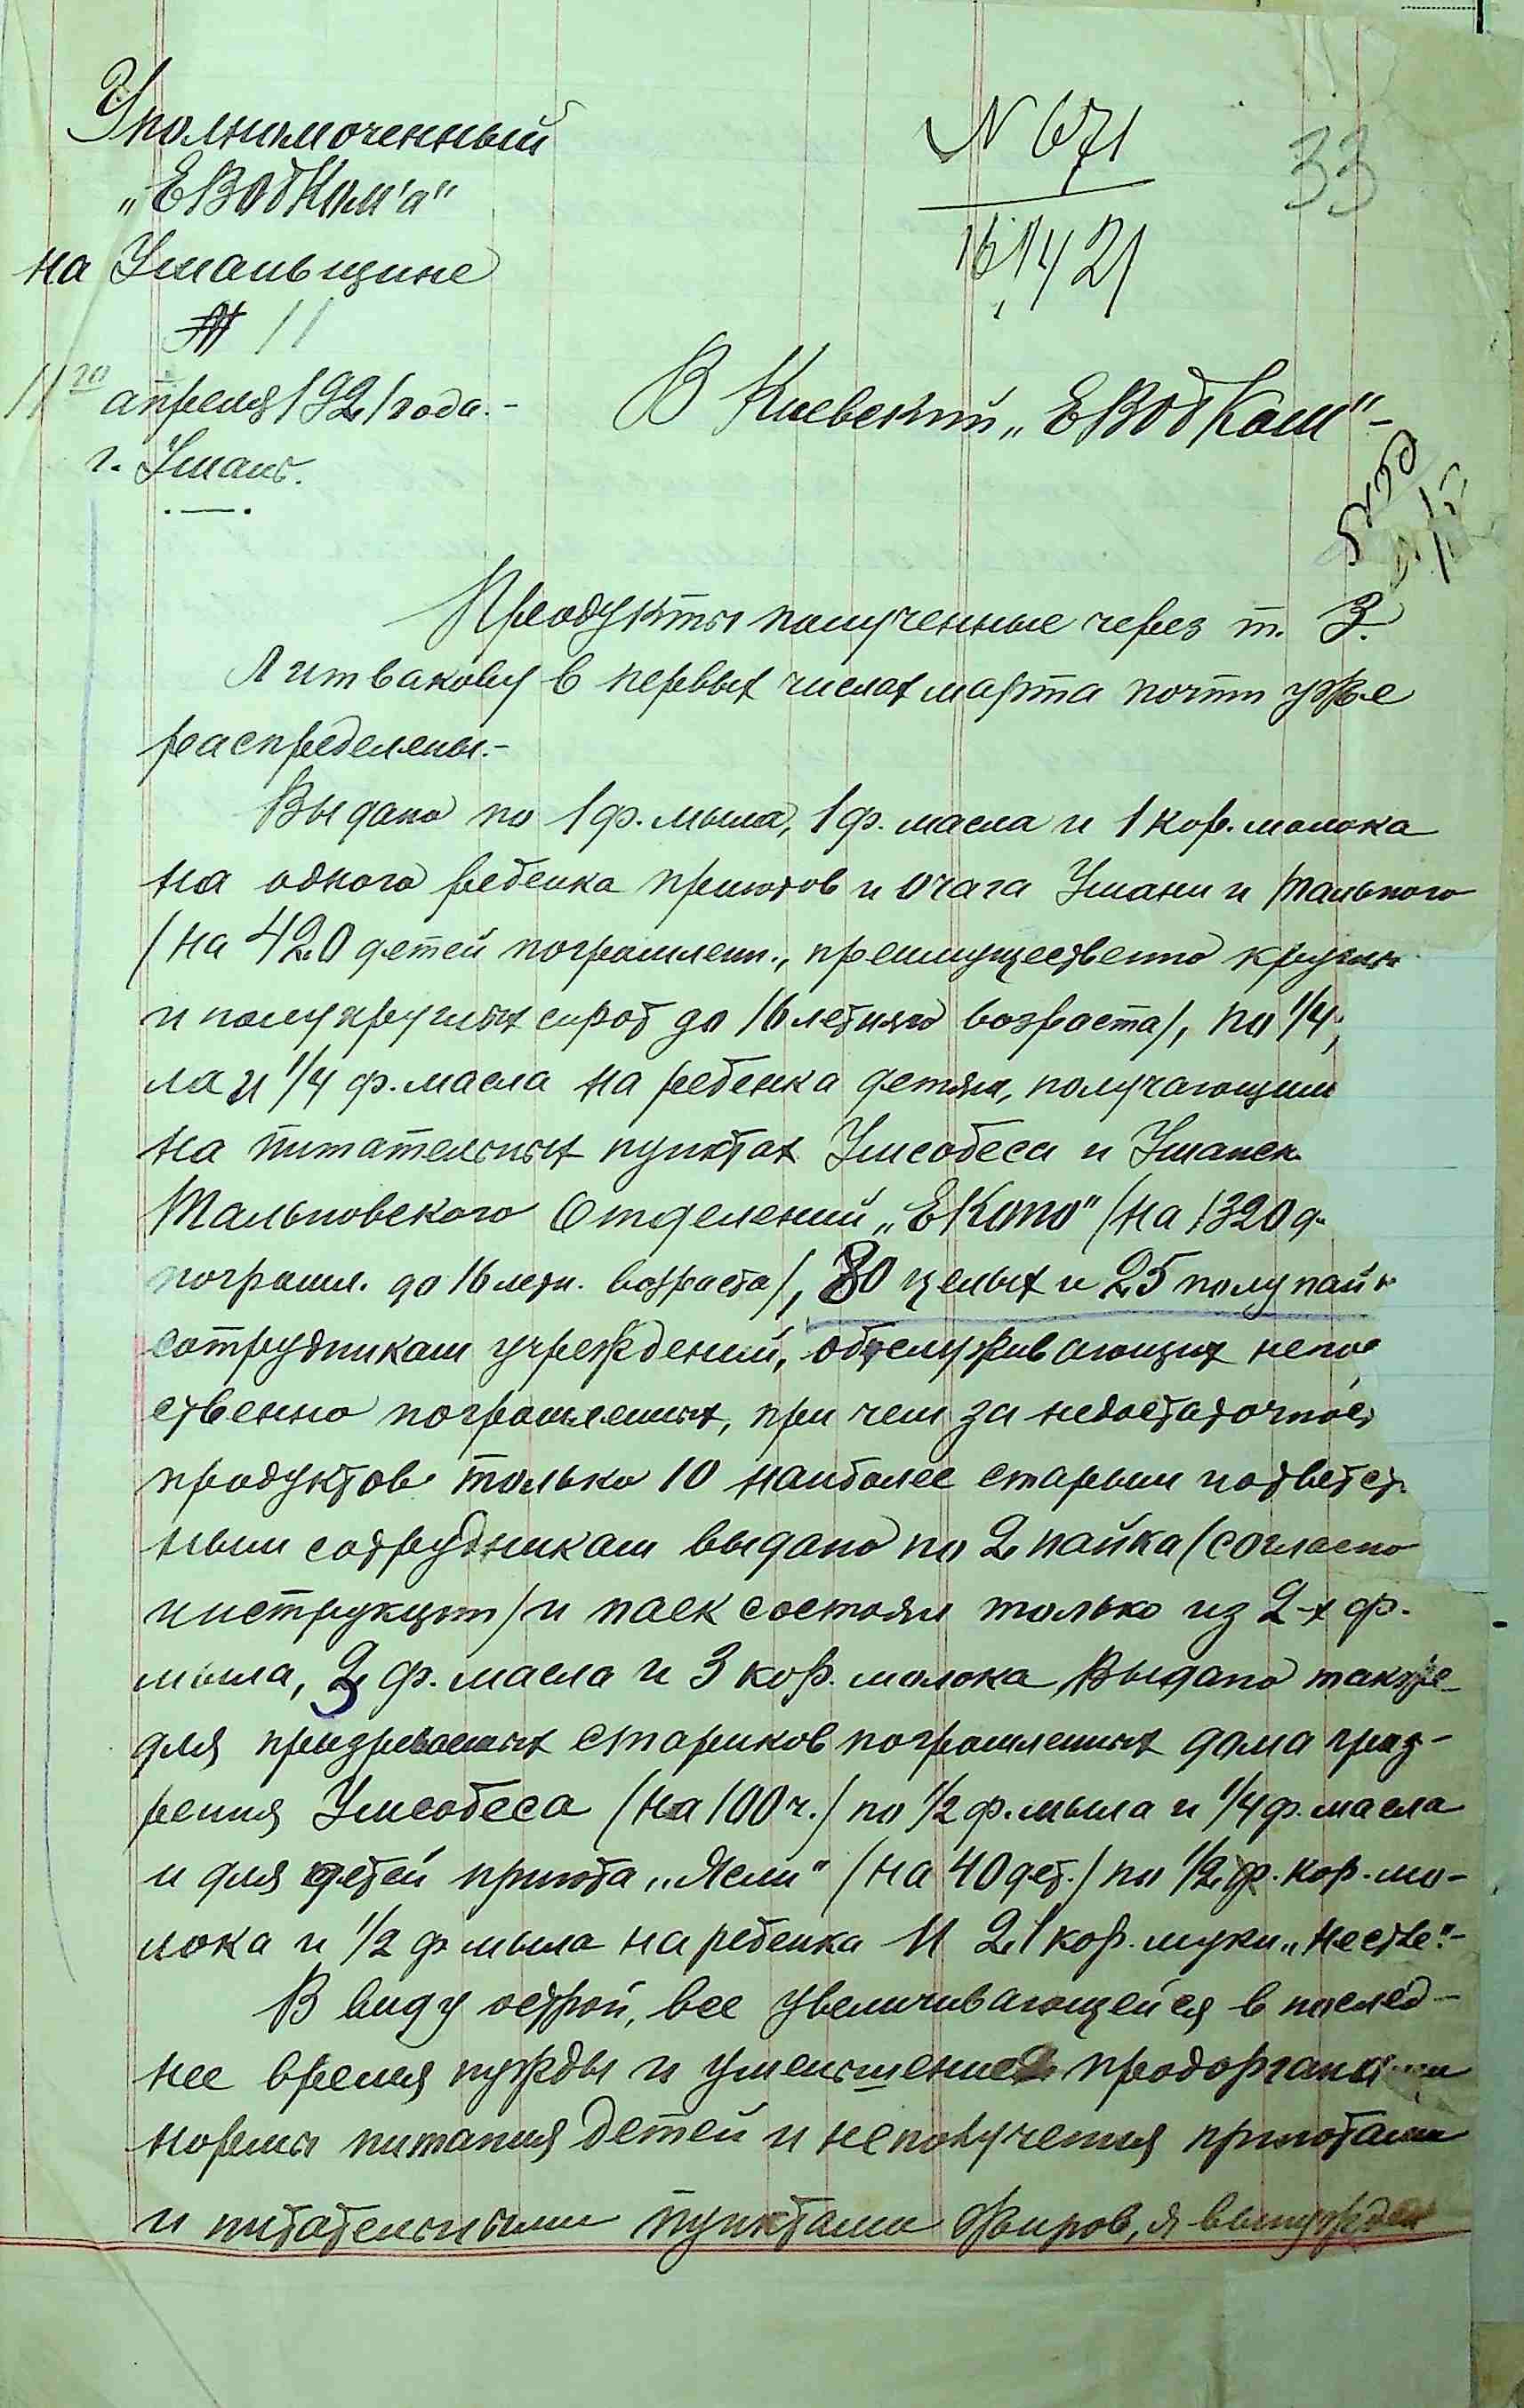 Уполномоченный
„ЕВобКом'а"
на Уманьщине
11го апреля 1921 года.-
г. Умань.
N 671
16/IV 21
33
В Киевский „ЕВобКом"-
Продукты полученные через т. З.
Литвакову в первых числах марта почти уже
распределены.-
Выдано по 1 ф. мыла, 1 ф. масла и 1 кор. молока
на одного ребенка приютов и очага Умани и Тального
(на 420 детей погромлен., преимущественно круглых
и полукруглых сирот до 16 летняго возраста), по 1/4
ла и 1/4 ф. масла на ребенка детям, получающим
на питательных пунктах Умсобеса и Уманск.
Тальновского Отделений „ЕКопо" (на 1320 д.
погромл. до 16 летн. возраста), 80 целых и 25 полупайк
сотрудникам учреждений, обслуживающих непос
ственно погромленных, при чем за недостаточност
продуктов только 10 наиболее старым и ответст
ным сотрудникам выдано по 2 пайка (согласно
инструкции) и паек состоял только из 2-х ф.
мыла, 3 ф. масла и 3 кор. молока. Выдано также
для призреваемых стариков погромленных дома приз-
рения Умсобеса (на 100 ч.) по 1/2 ф. мыла и 1/4 ф. масла
и для детей приюта „Ясли" (на 40 дет.) по 1/2 кор. мо-
лока и 1/2 ф мыла на ребенка и 21 кор. муки „Нестле".-
В виду острой, все увеличивающейся в послед-
нее время нужды и уменьшения продорганами
нормы питания детей и неполучения приютами
и питательными пунктами жиров, я вынужден